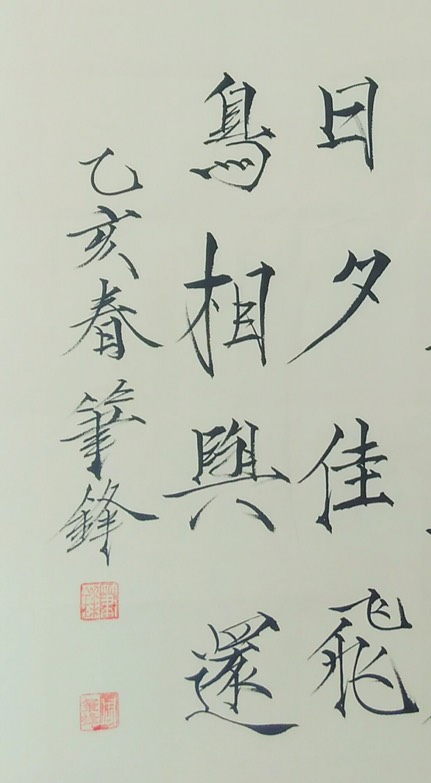 日夕佳飛
鳥相與還
乙亥春筆鋒